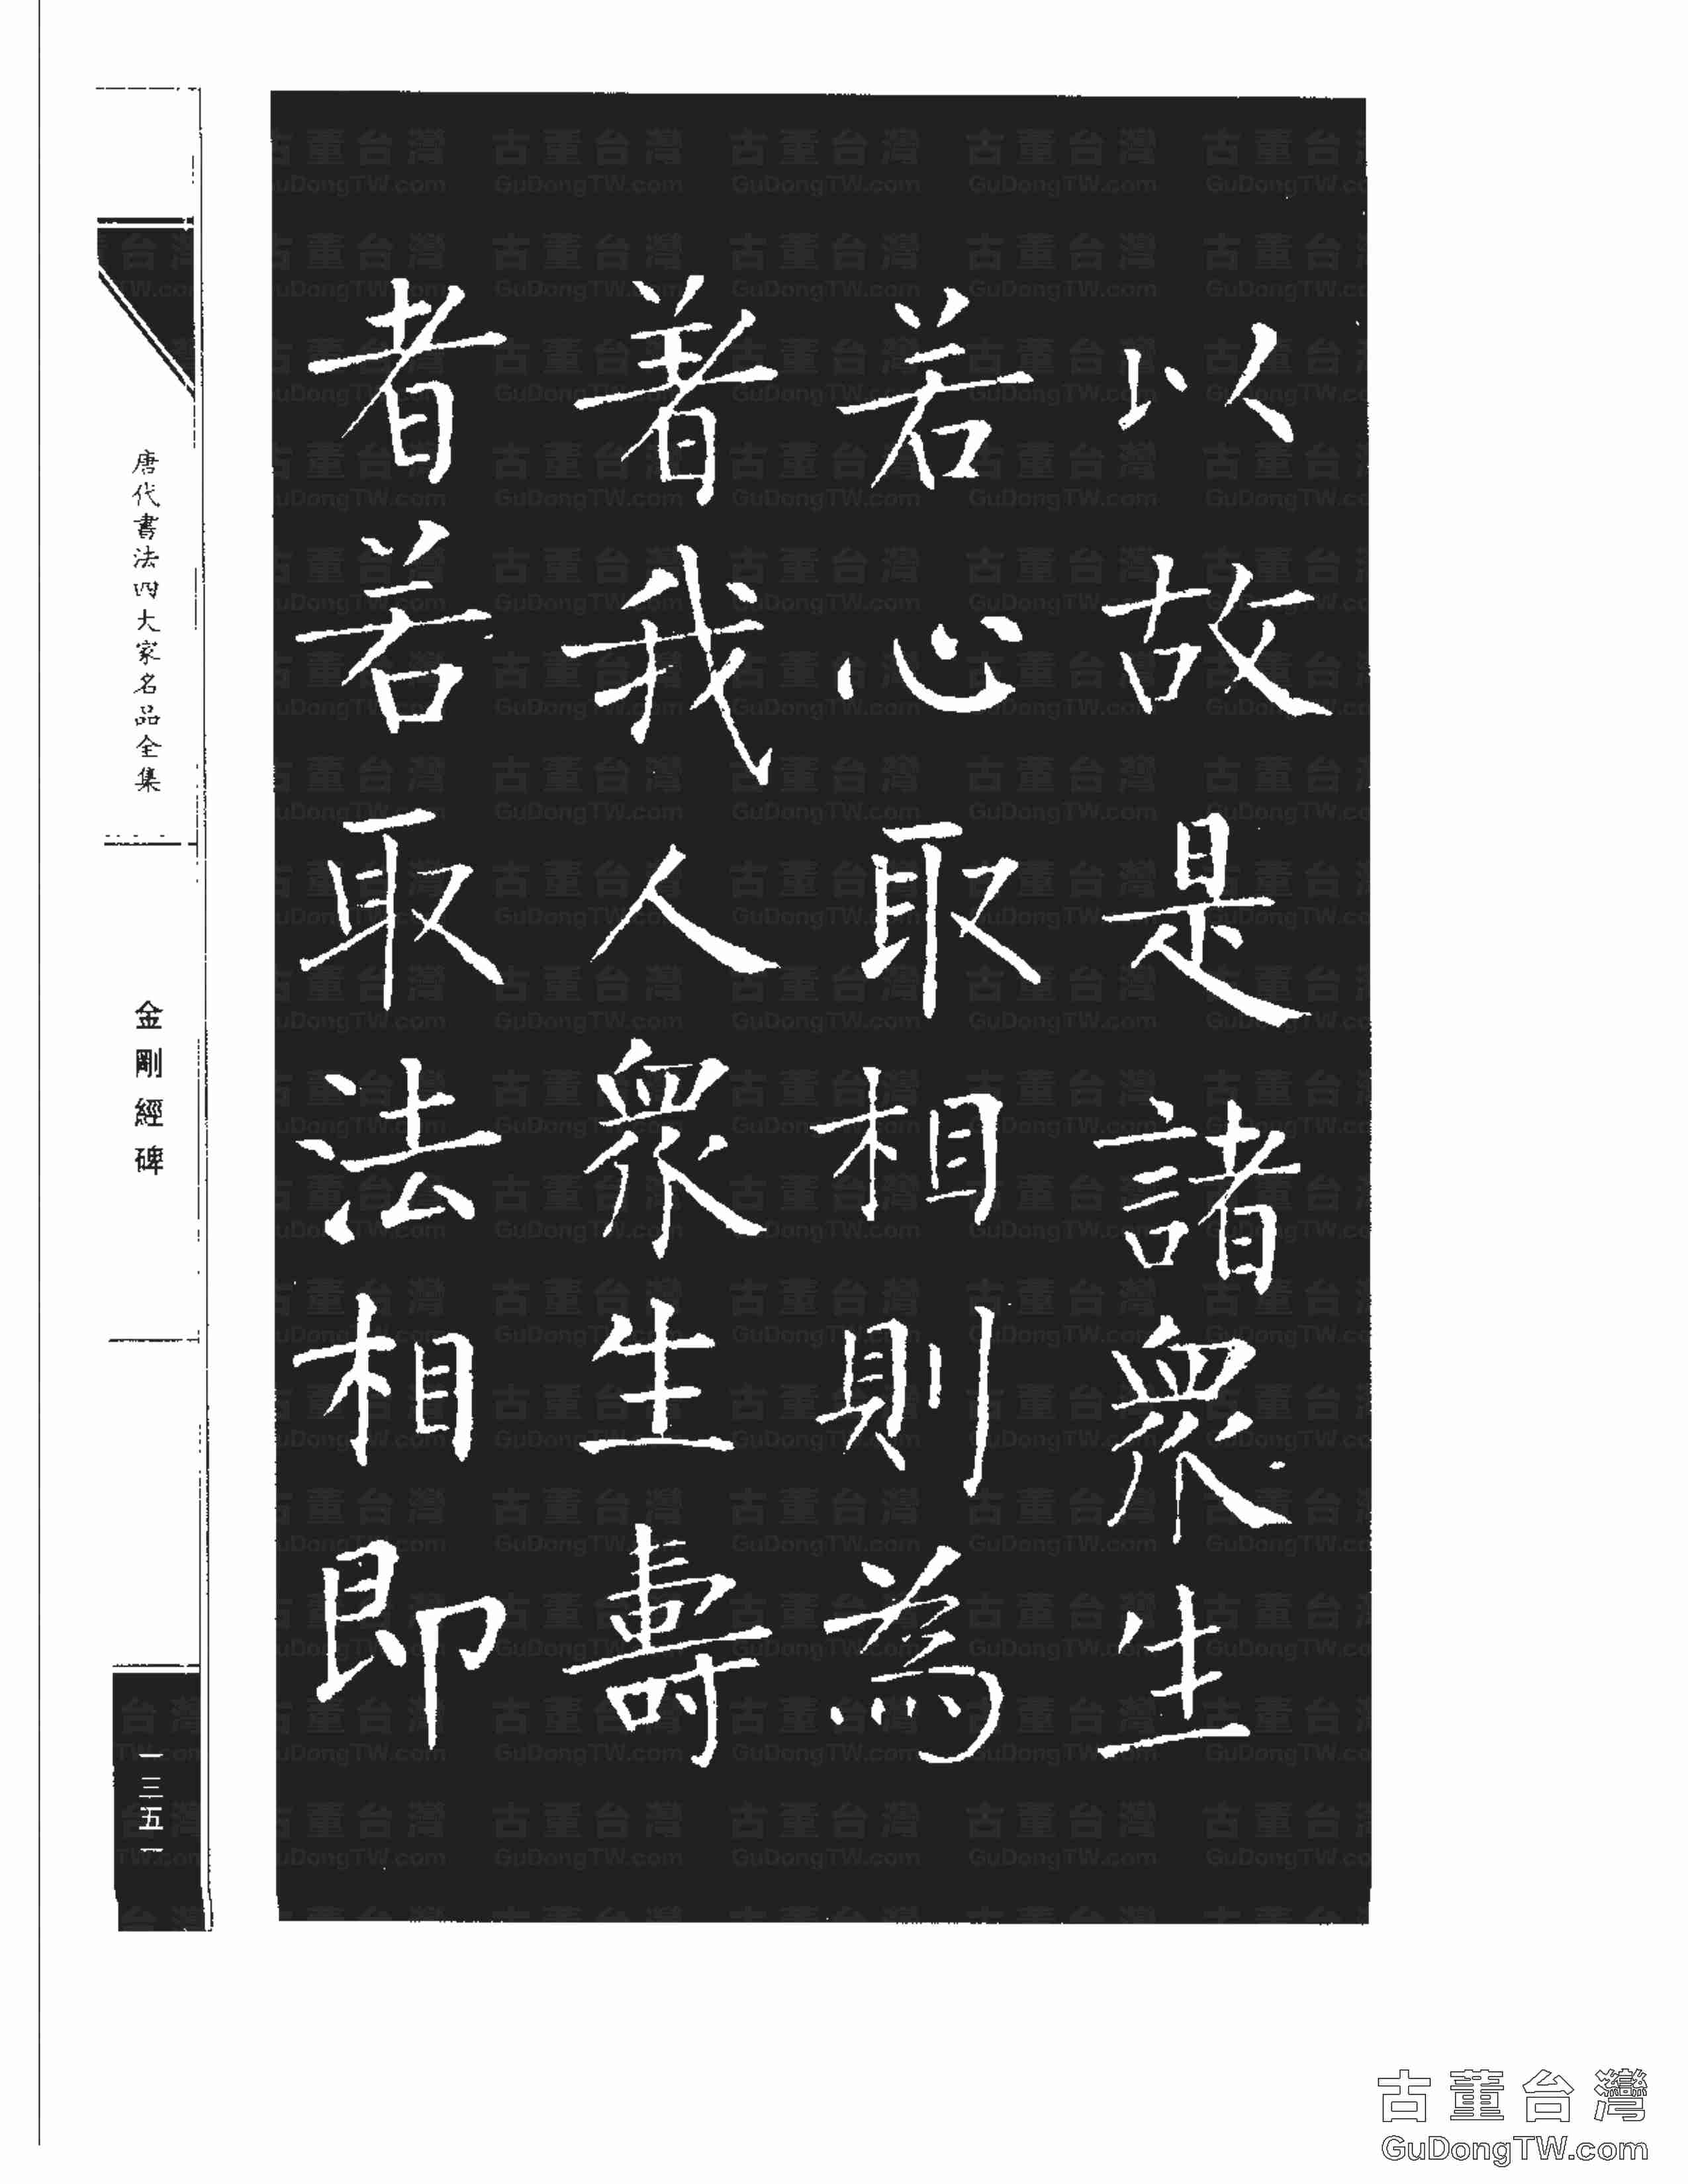 以故是諸眾生
若心取相則為
著我人眾生壽
者若取法相即
唐代書法四大家名品全集
金剛經碑
一三五一
古董台灣
GuDongTW.com